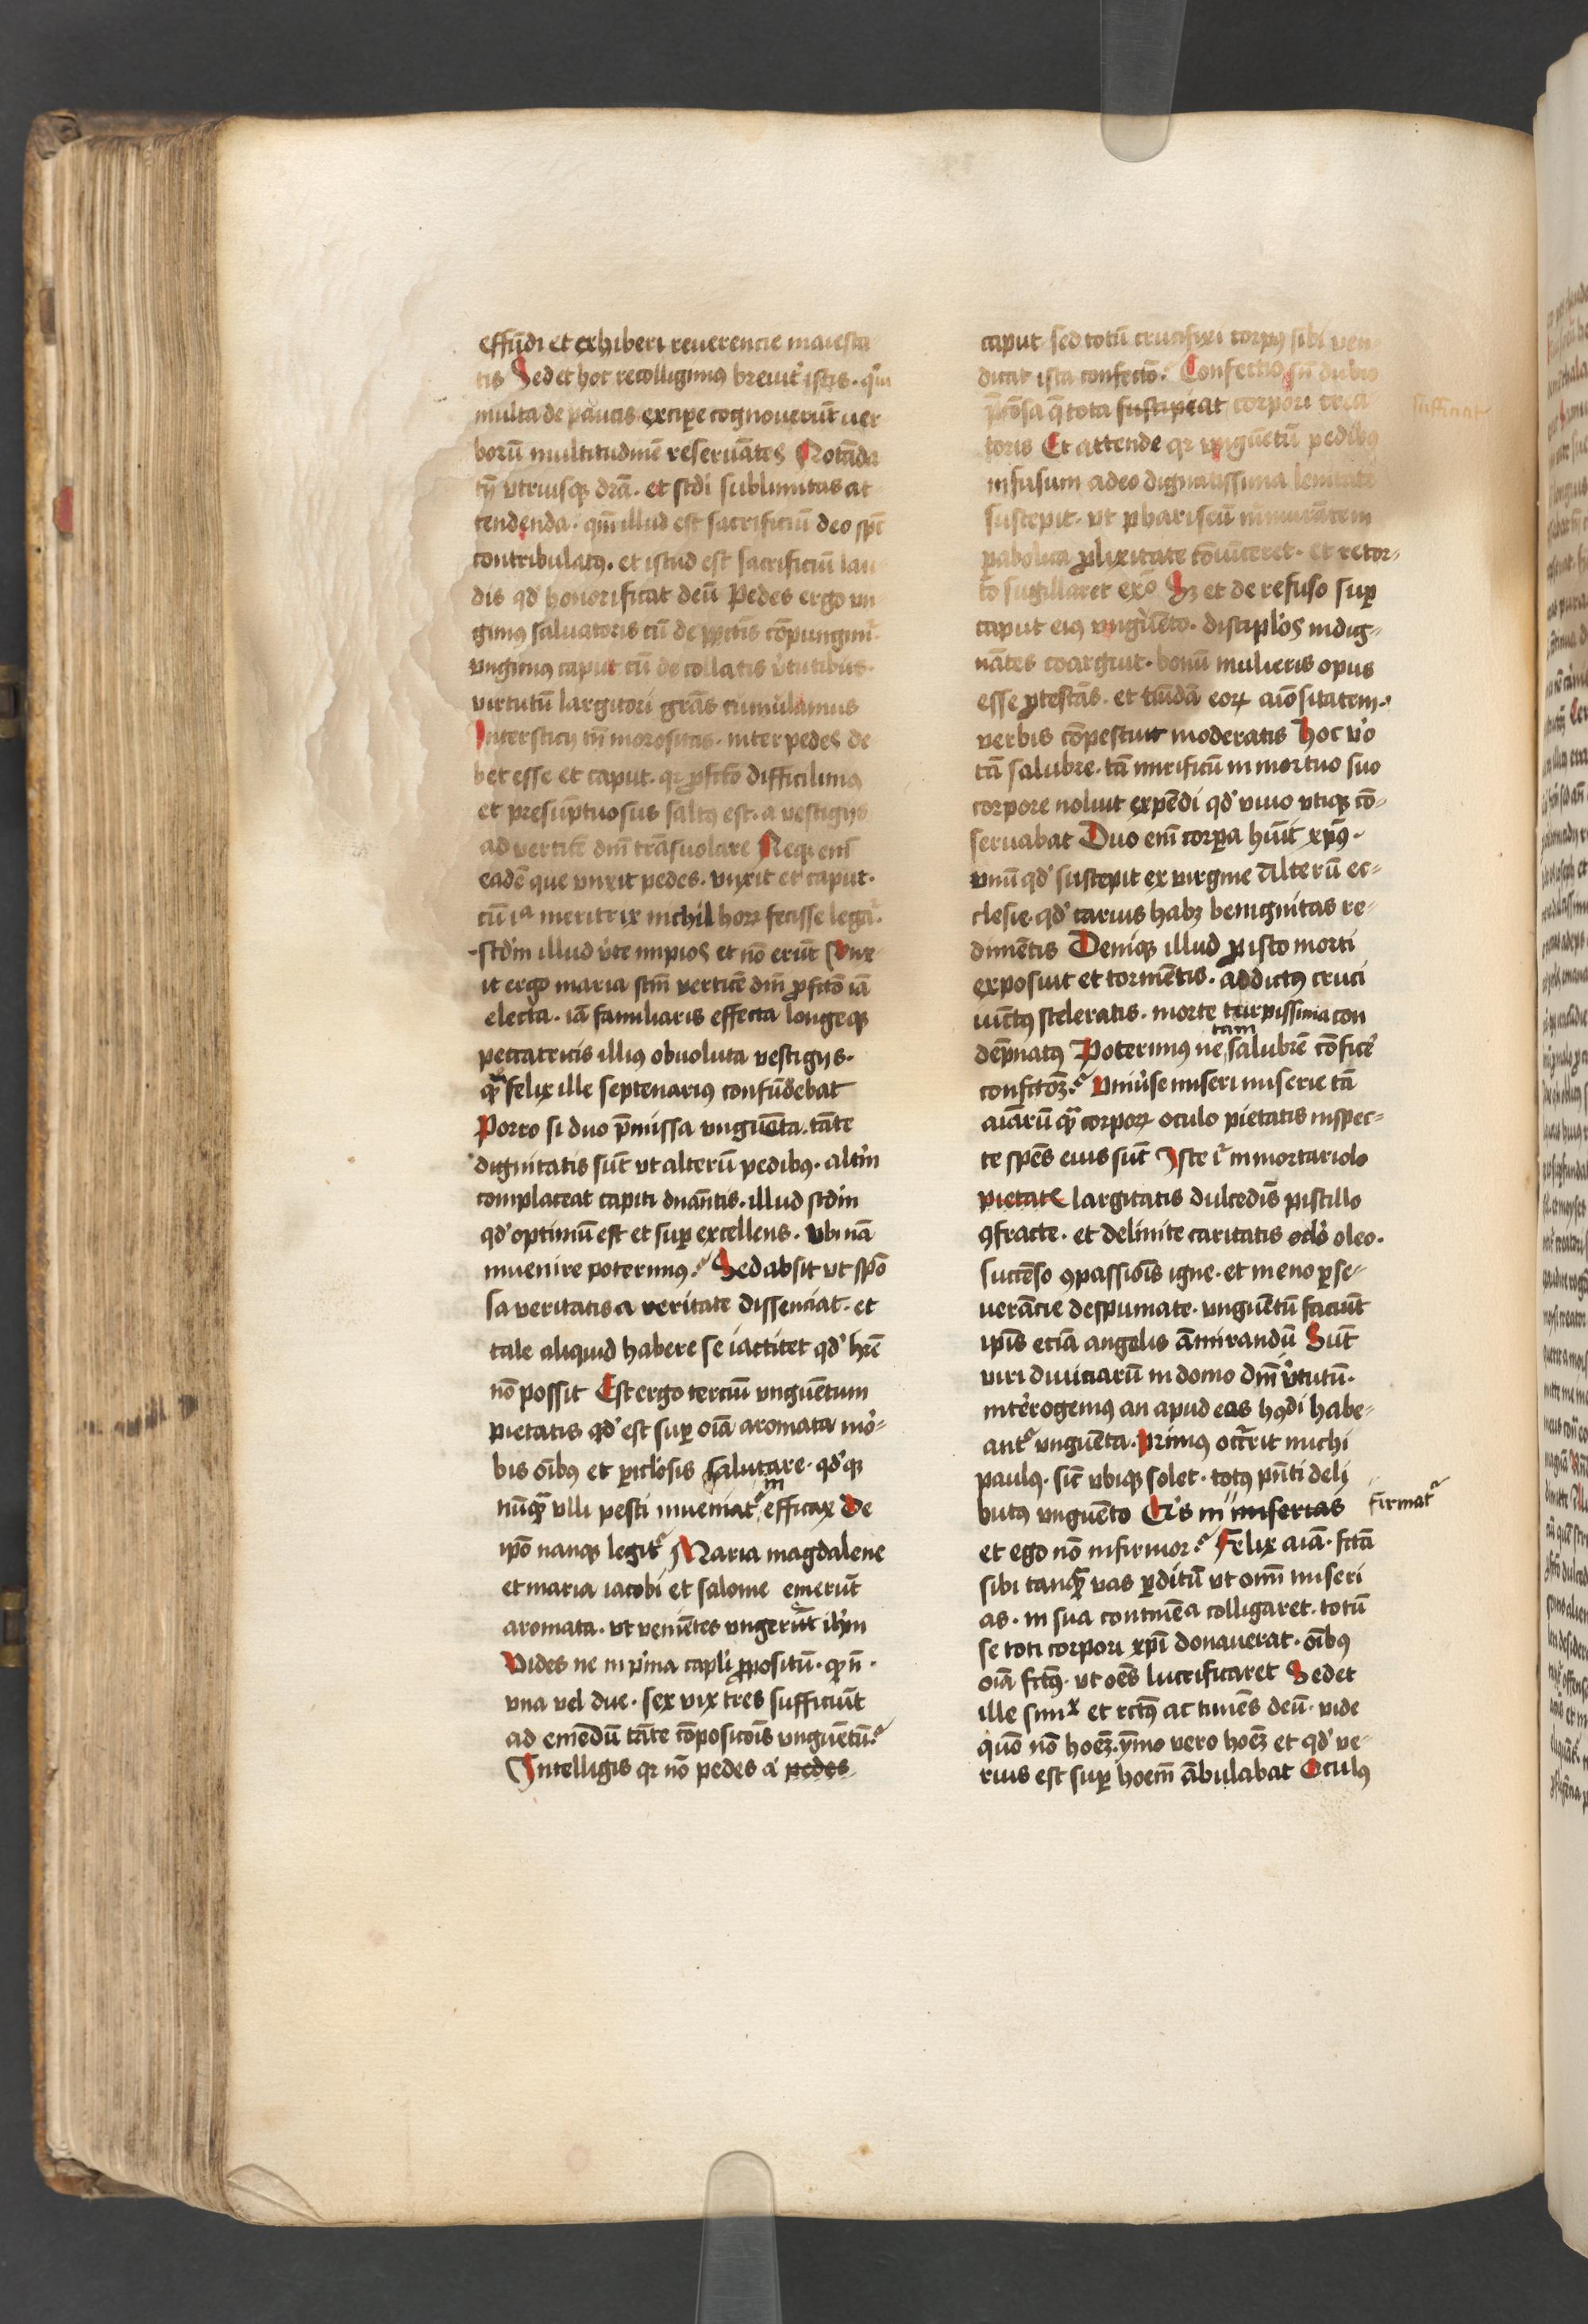 effūdi et exhiberi reuerencie maiesta
tis Sed et hoc recolligimus breuit' istis · q'a
multa de paucis excipe cognouerūt uer
borū multitudinē reseruātes Notāda
tn̄ vtriusq; dr̄a · et scd̓i sublimitas at
tendenda · qm̄ illud est sacrificiū deo spc̄
contribulatꝰ · et istud est sacrificiū lau
dis qd' honorificat deū Pedes ergo vn
gimꝰ saluatoris cū de pctīs cōpungim'
vngimꝰ caput cū de collatis v'tutibus ·
virtutū largitori grās cumulamus
Intersticij tn̄ morositas · inter pedes de
bet esse et caput · qr ꝓfcō difficilimꝰ
et presūptuosus saltꝰ est · a vestigijs
ad verticē dn̄i trāsuolare Neq; enī
eadē que vnxit pedes · vnxit et caput ·
cū iā meritrix nichil horꝝ fecisse legat' ·
scd̓m illud v'te impios et nō erūt Vnx
it ergo maria scm̄ verticē dn̄i ꝓfcō iā
electa · iā familiaris effecta longeq;
peccatricis illiꝰ obuoluta vestigijs ·
qꝫ felix ille septenariꝰ confūdebat
Porro si duo p̄missa vnguēta · tāte
dignitatis sūt vt alterū pedibꝰ · alt'm
complaceat capiti dn̄antis · illud scd̓m
qd' optimū est et suꝑ excellens · vbi nā
inuenire poterimꝰ ? Sed absit vt spō
sa veritatis a veritate dissenciat · et
tale aliquid habere se iactitet qd' hr̄e
nō possit Est ergo terciū vnguētum
pietatis qd' est suꝑ oīa aromata mo'
bis oībꝰ et ꝑiclosis salutare · qd'q;
nūqꝫ vlli pesti inueniat' in efficax De
ipō nanq; legit' Maria magdalene
et maria iacobi et salome emerūt
aromata · vt veniētes vngerūt ih'm
Vides ne in p'ma capl'i ꝓpositū · qꝫ n̄ ·
vna vel due · sex vix tres sufficiūt
ad emēdū tāte cōposicōis vnguētū ?
Intelligis qr nō pedes a' pedes
caput sed totū crucifixi corpꝰ sibi ven
dicat ista confectō ? Confectio sn̄ dubio
p̄cōsa q̄ tota suscipeat corpori crea
sufficiat
toris Et attende qr vnguētū pedibꝰ
infusum adeo dignatissima lenitate
suscepit · vt phariseū murmurātem
ꝑabolica ꝓlixitate cōuinceret · et retor-
to sugillaret exo Sꝫ et de refuso suꝑ
caput eiꝰ vngu'ento · disciplos indig-
nātes coarguit · bonū mulieris opus
esse ꝓtestās · et tūdā eorꝝ aīositatem ·
verbis cōpescuit moderatis Hoc v'o
tā salubre · tā mirificū in mortuo suo
corpore noluit expēdi qd' viuo vtiq; cō-
seruabat Duo em̄ corpa hūit xp̄s ·
vnū qd' suscepit ex virgine Alterū ec-
clesie qd' carius habꝫ benignitas re-
dimētis Deniq; illud ꝓ isto morti
exposuit et tormētis · addictꝰ cruci
iūctꝰ sceleratis · morte turpissima con
dēpnatꝰ Poterimꝰ ne tam salubrē cōfice'
confctōꝫ ? Vniu'se miseri miserie tā
aīarū qꝫ corporꝝ oculo pietatis inspec-
te spēs eius sūt Iste i' in mortariolo
pietate largitatis dulcedīs pistillo
ꝯfracte · et delinite caritatis oclō oleo ·
succēso ꝯpassiōis igne · et in eno ꝑse-
uerācie despumate · vnguētū faciūt
ipīs eciā angelis āmirandū Sūt
viri diuiciarū in domo dn̄i v'tutū ·
int'erogemꝰ an apud eos hꝰdi habe-
ant' vnguēta · Primꝰ occ'rit michi
paulꝰ · sic̄ vbiq; solet · totꝰ pn̄ti deli
butꝰ vnguēto Q's in miserias
firmat'
et ego nō infirmor ? Felix aīa · fctā
sibi tanqꝫ vas ꝑditū vt omn̄ miseri
as · in sua continēa colligaret · totū
se toti corpori xp̄i donauerat · oībꝰ
oīa fctꝰ · vt oēs lucrificaret Sed et
ille simx et rctꝰ ac timēs deū · vide
quō nō hoēꝫ · ymo vero hoēꝫ et qd' ve-
rius est suꝑ hoem̄ ābulabat Oculꝰ